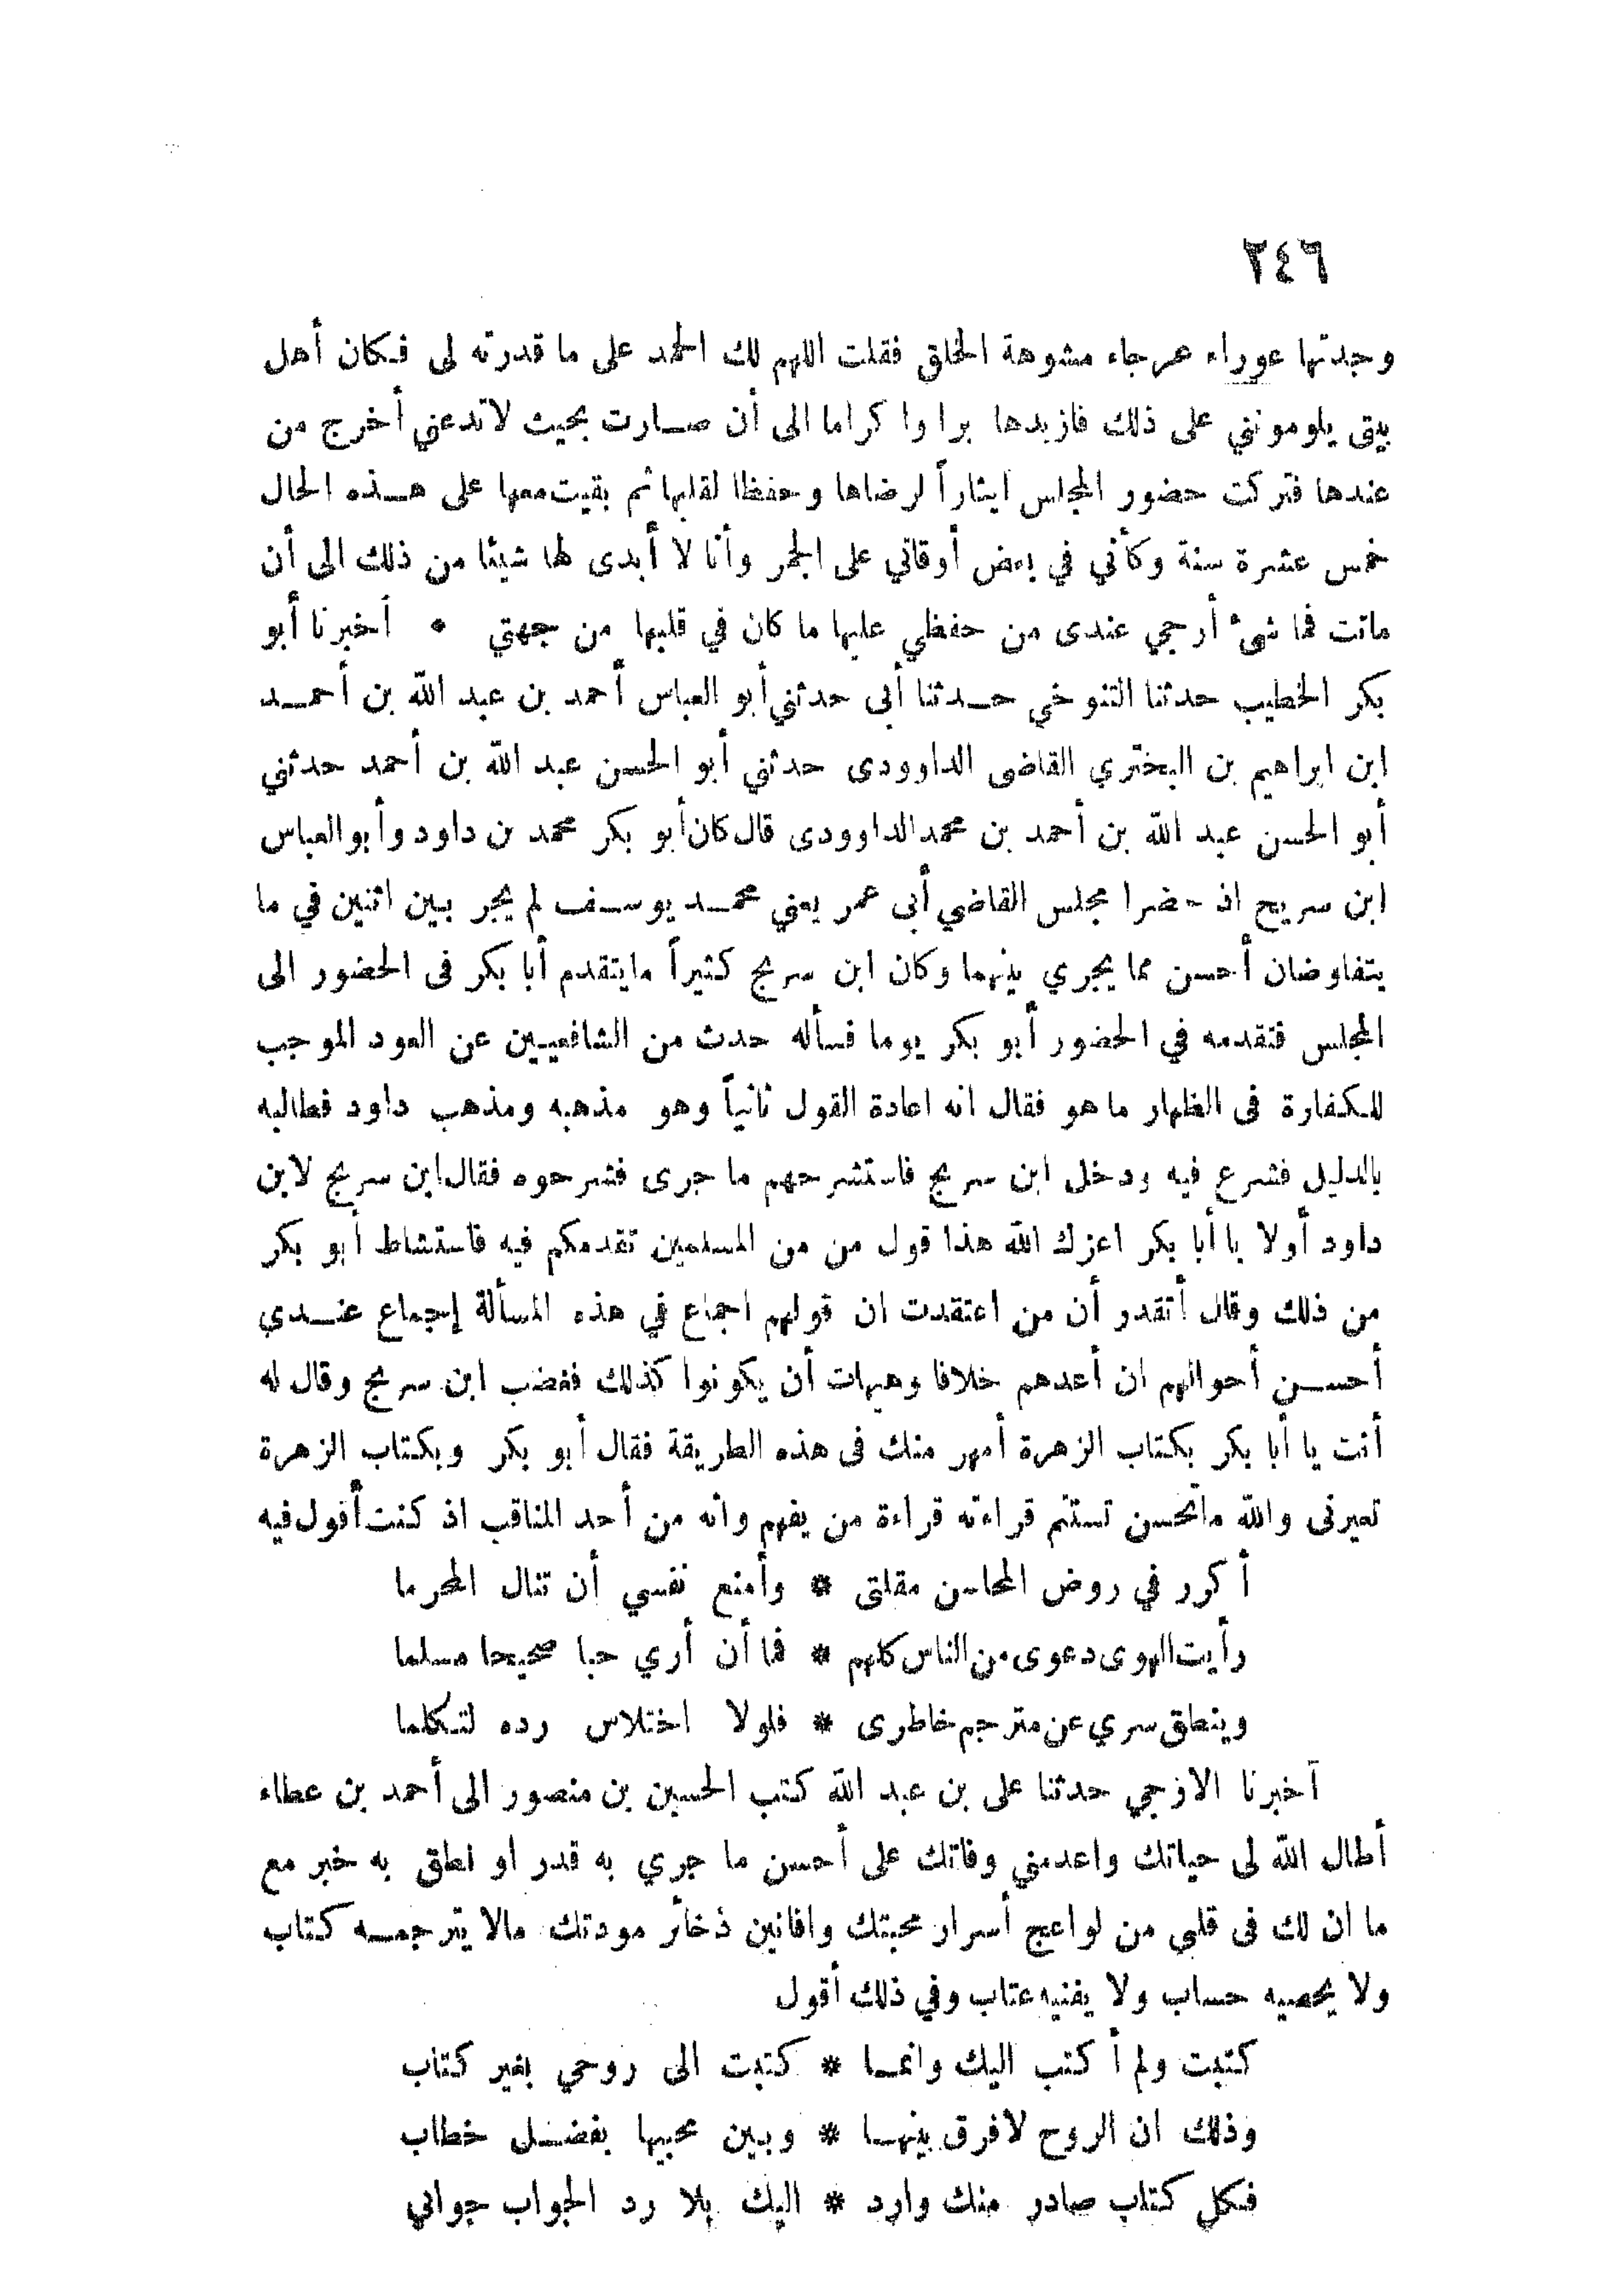 ٢٤٦
وجدتها عوراء عرجاء مشوهة الخلق فقلت اللهم لك الحمد على ما قدرته لى فكان أهل
بيتى يلومونني على ذلك فازيدها برا واكراما الى أن صارت بحيث لاتدعني أخرج من
عندها فتركت حضور المجلس ايثاراً لرضاها وحفظا لقلبها ثم بقيت معها على هذه الحال
خمس عشرة سنة وكأني في بعض أوقاتي على الجمر وأنا لا أبدى لها شيئا من ذلك الى أن
ماتت فما شئ أرجي عندى من حفظي عليها ما كان في قلبها من جهتي * أخبرنا أبو
بكر الخطيب حدثنا التنوخي حدثنا أبى حدثني أبو العباس أحمد بن عبد الله بن أحمد
ابن ابراهيم بن البختري القاضى الداوودى حدثني أبو الحسن عبد الله بن أحمد حدثني
أبو الحسن عبد الله بن أحمد بن محمد الداوودى قال كان أبو بكر محمد بن داود وأبو العباس
ابن سريح اذ حضرا مجلس القاضي أبى عمر يعني محمد يوسف لم يجر بين اثنين في ما
يتفاوضان أحسن مما يجري بينهما وكان ابن سريج كثيراً مايتقدم أبا بكر فى الحضور الى
المجلس فتقدمه في الحضور أبو بكر يوما فسأله حدث من الشافعيين عن العود الموجب
للكفارة فى الظهار ما هو فقال انه اعادة القول ثانياً وهو مذهبه ومذهب داود فطالبه
بالدليل فشرع فيه ودخل ابن سريج فاستشرحهم ما جرى فشرحوه فقال ابن سريج لابن
داود أولا يا أبا بكر اعزك الله هذا قول من من المسلمين تقدمكم فيه فاستشاط أبو بكر
من ذلك وقال أتقدر أن من اعتقدت ان قولهم اجماع في هذه المسألة إجماع عندي
أحسن أحوالهم ان أعدهم خلافا وهيهات أن يكونوا كذلك فغضب ابن سريج وقال له
أنت يا أبا بكر بكتاب الزهرة أمهر منك فى هذه الطريقة فقال أبو بكر وبكتاب الزهرة
تعيرنى والله ماتحسن تستتم قراءته قراءة من يفهم وانه من أحد المناقب اذ كنت أقول فيه
أكرر في روض المحاسن مقلتى * وأمنع نفسي أن تنال المحرما
رأيت الهوى دعوى من الناس كلهم * فما أن أري حبا صحيحا مسلما
وينطق سري عن مترجم خاطرى * فلولا اختلاس رده لتكلما
أخبرنا الازجي حدثنا على بن عبد الله كتب الحسين بن منصور الى أحمد بن عطاء
أطال الله لى حياتك واعدمني وفاتك على أحسن ما جري به قدر او نطق به خبر مع
ما ان لك فى قلبي من لواعج أسرار محبتك وافانين ذخائر مودتك مالا يترجمه كتاب
ولا يحصيه حساب ولا يفنيه عتاب وفي ذلك أقول
كتبت ولم أكتب اليك وانما * كتبت الى روحي بغير كتاب
وذلك ان الروح لافرق بينها * وبين محبيها بفضل خطاب
فكل كتاب صادر منك وارد * اليك بلا رد الجواب جوابي